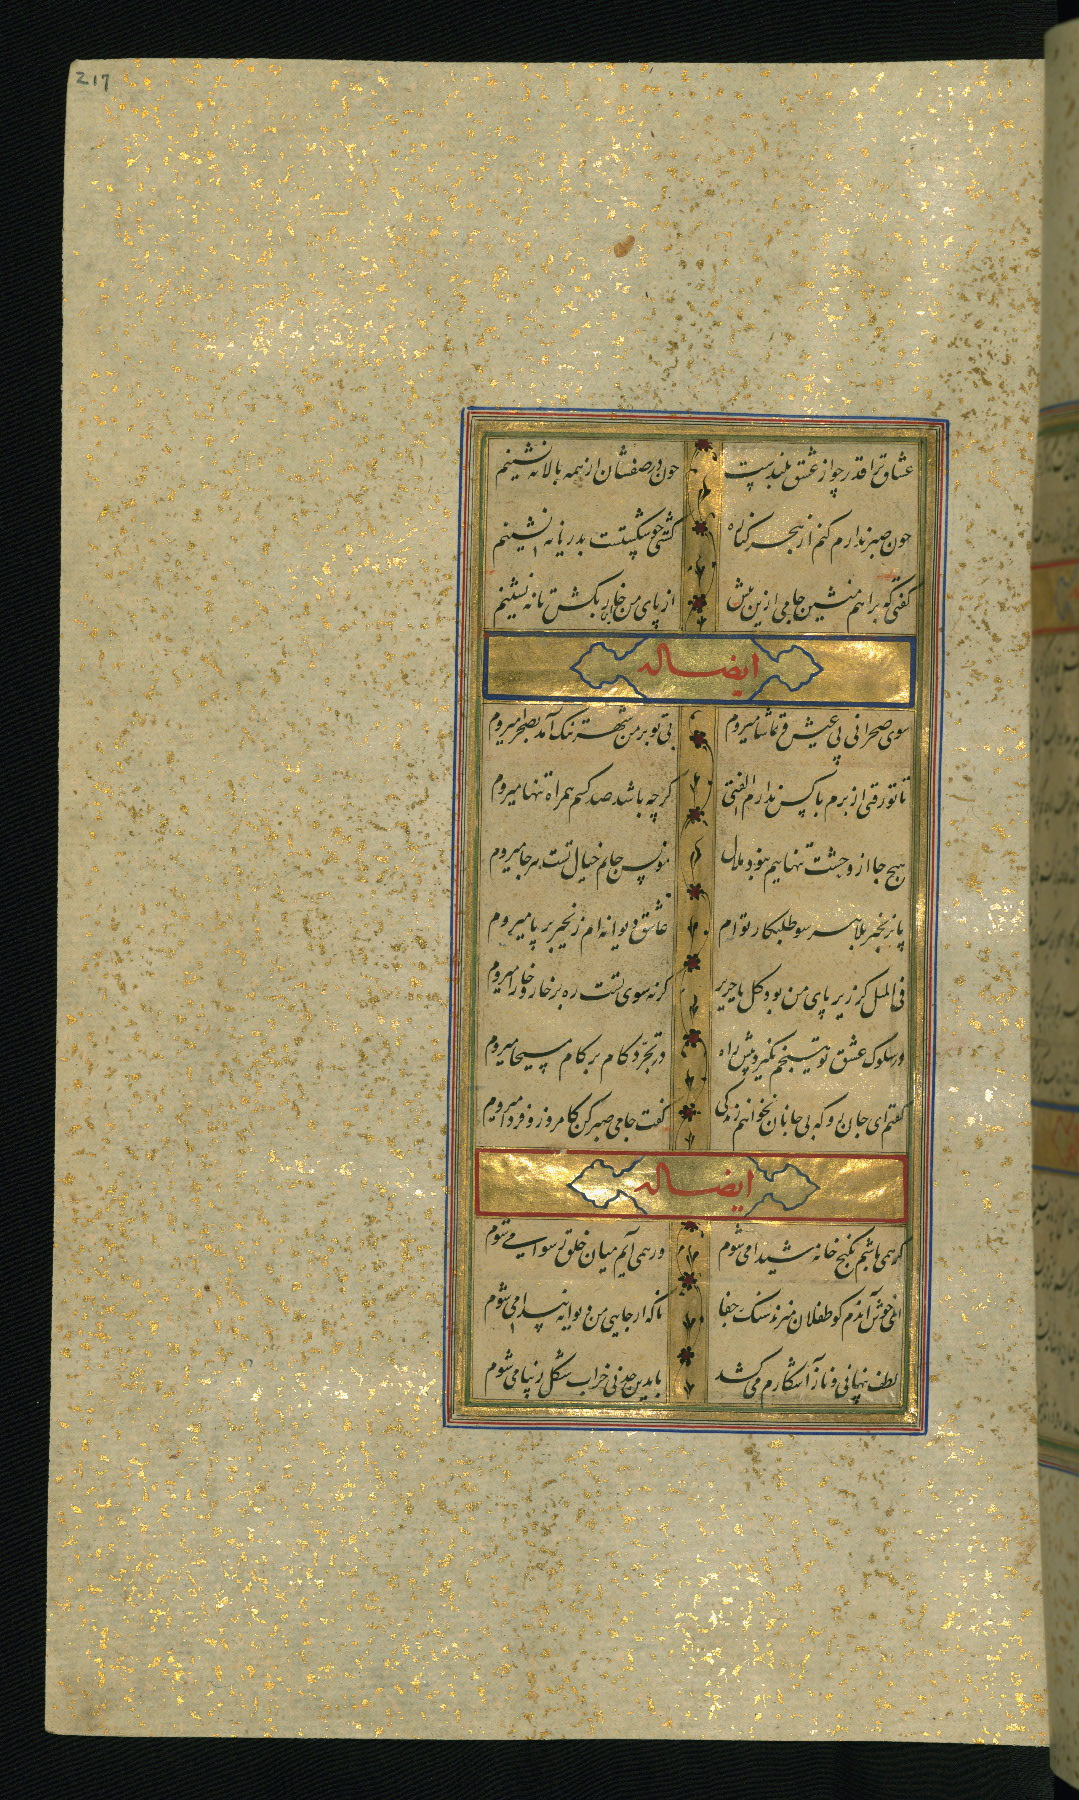 217
عشاق ترا قدر چو از عشق بلندست چون در صفشان از همه بالا ننشینم
چون صبر ندارم کنم از هجر کناره کشتی چو شکستست بدریا ننشینم
گفتی که براهم منشین جامی ازین بیش از پای من خار بکش تا ننشینم
ایضاله
سوی صحرا نی پی عیش و تماشا میروم بی تو بر من شهر تنک آمد بصحرا میروم
تا تو رفتی از برم با کس ندارم الفتی کرچه باشد صد کسم همراه تنها میروم
هیچ جا از وحشت تنهاییم نبود ملال مونس جانم خیال تست هرجا میروم
پا بزنجیر بلا هر سو طلبکار توام عاشق دیوانه ام زنجیر بر پا میروم
فی المثل کر زیر پای من بود کل یا حریر کرنه سوی تست ره بر خار و خارا میروم
در سلوک عشق تو تیغم نکیرد پیش راه در تجرد کام بر کام مسیحا میروم
گفتم ای جان رو که بی جانان نخواهم زندکی کفت جامی صبر کن کامروز و فردا میروم
ایضاله
کر همی باشم بکنج خانه شیدا می شوم ور همی آیم میان خلق رسوا می شوم
خوش آندم کو طفلان سنک جفا ناکه از جایی من دیوانه پیدا می شوم
لطف پنهانی و ناز آشکارم می کشد خراب شکل زیبا می شوم